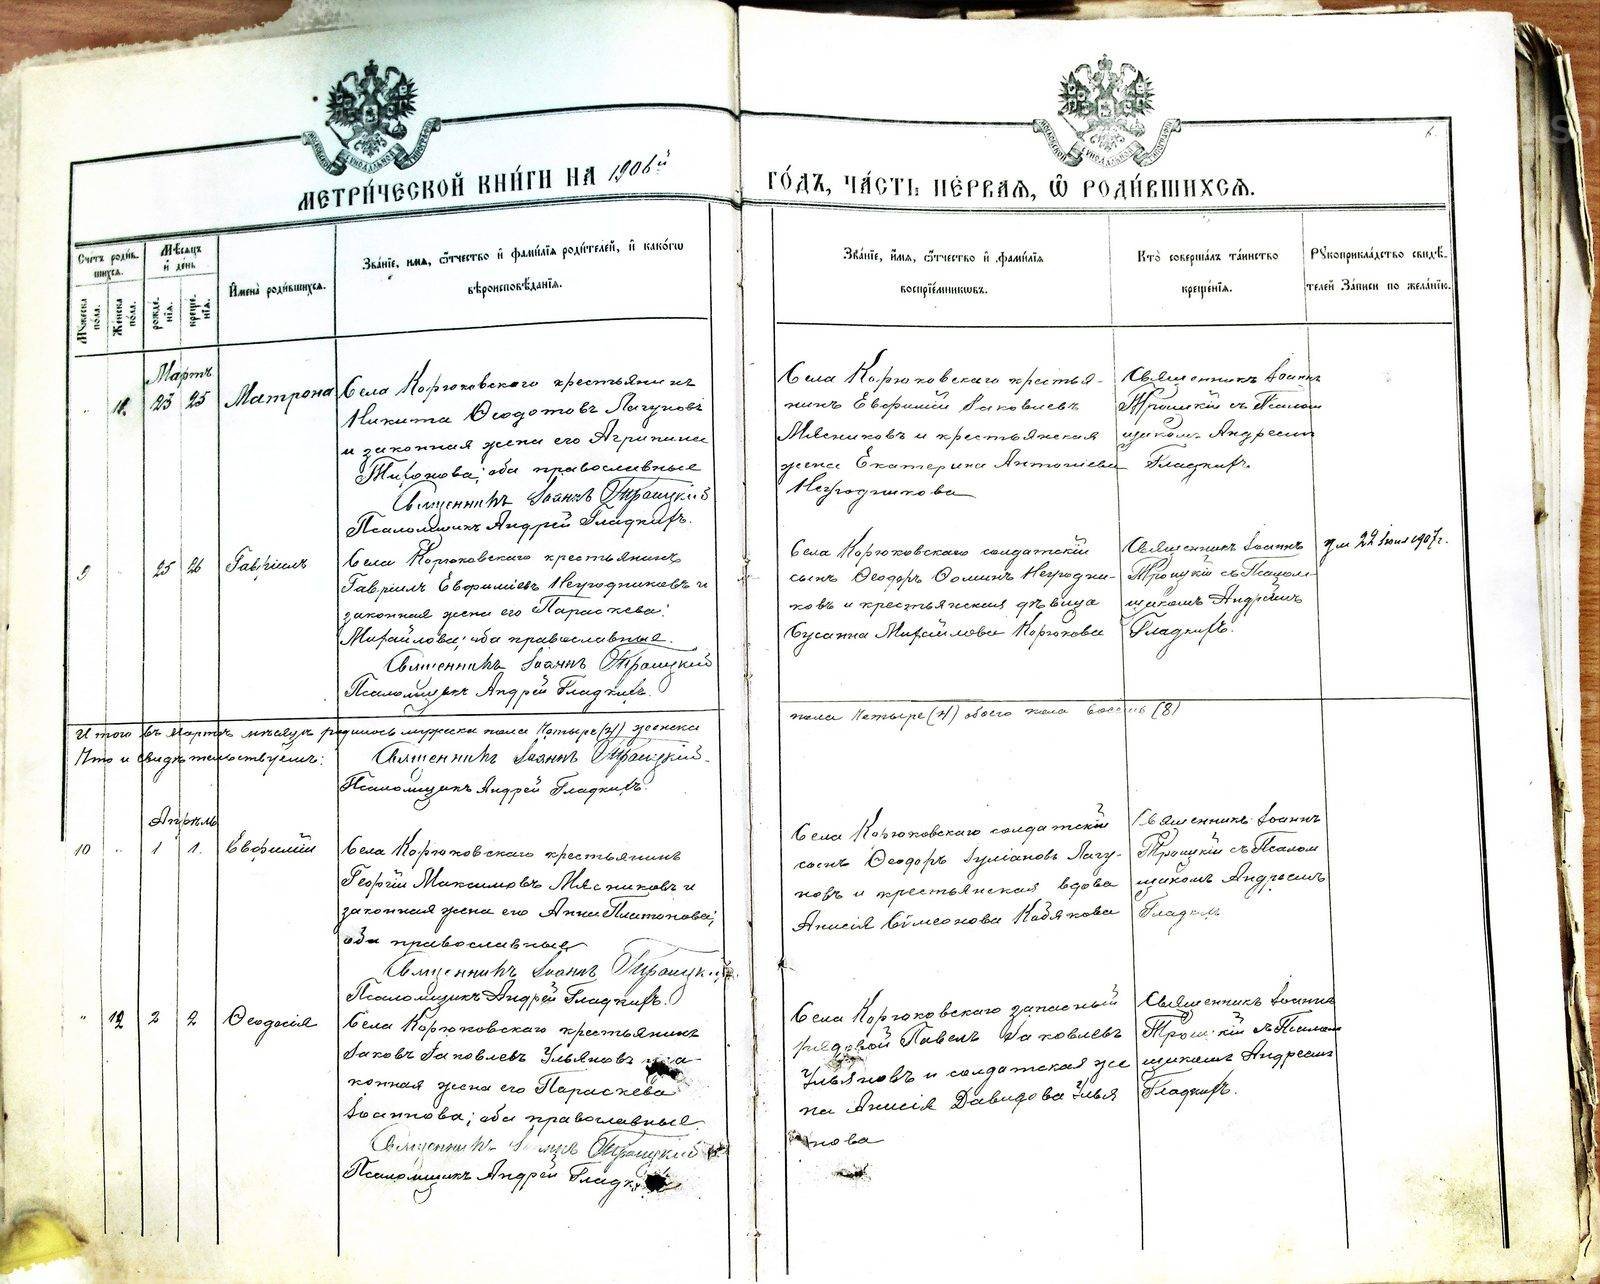 МОСКОВСКОЙ СѴНОДАЛЬНОЙ ТИПОГРАФІИ
МОСКОВСКОЙ СѴНОДАЛЬНОЙ ТИПОГРАФІИ
6.
МЕТРИ́ЧЕСКОЙ КНИ́ГИ НА 1906й
ГО́ДЪ, ЧА́СТЬ ПЕ́РВАѦ, Ѡ РОДИ́ВШИХСѦ.
Счетъ роди́в-
шихсѧ.
Мꙋжеска по́ла.
Же́нска по́ла.
Мѣ́сѧцъ
и҆ де́нь
рожде́-
нїѧ.
креще́-
нїѧ.
И҆мена̀ роди́вшихсѧ.
Зва́нїе, и҆мѧ, ѻ҆́тчество и҆ фами́лїѧ роди́телей, и҆ како́гѡ
вѣроисповѣ́данїѧ.
Зва́нїе, и҆́мѧ, ѻ҆́тчество и҆ фами́лїѧ
воспрїе́мникѡвъ.
Кто̀ соверша́лъ та́инство
креще́нїѧ.
Рꙋкоприкла́дство свидѣ́-
телей За́писи по жела́нїю.
Мартъ
" 11. 23 25 Матрона
Села Корюковскаго крестьянинъ
Никита Ѳеодотовъ Лагуновъ
и законная жена его Агрипина
Миронова; оба православные
Священникъ Іоаннъ Троицкій
Псаломщикъ Андрей Гладкихъ.
Села Корюковскаго крестья-
нинъ Евфимій Іаковлевъ
Мясниковъ и крестьянская
жена Екатерина Антониева
Негодникова
Священникъ Іоаннъ
Троицкій съ Псалом
щикомъ Андреемъ
Гладкихъ.
9 " 25 26 Гавріилъ
Села Корюковскаго крестьянинъ
Гавріилъ Евфиміевъ Негодниковъ и
законная жена его Параскева
Михайлова; оба православные.
Священникъ Іоаннъ Троицкій
Псаломщикъ Андрей Гладкихъ.
Села Корюковскаго солдатскій
сынъ Ѳеодоръ Ѳоминъ Негодни-
ковъ и крестьянская дѣвица
Сусанна Михайлова Корюкова
Священникъ Іоаннъ
Троицкій съ Псалом-
щикомъ Андреемъ
Гладкихъ.
ум 22 1907 г.
Итого въ Мартѣ мѣсяцѣ родилось мужска пола Четыре (4) женска
пола Четыре (4) обоего пола Восемь (8)
Что и свидѣтельствуемъ:
Священникъ Іоаннъ Троицкій.
Псаломщикъ Андрей Гладкихъ.
Апрѣль
10 " 1 1. Евфимій
Села Корюковскаго крестьянинъ
Георгій Максимовъ Мясниковъ и
законная жена его Анна Платонова;
оба православные
Священникъ Іоаннъ Троицкій
Псаломщикъ Андрей Гладкихъ.
Села Корюковскаго солдатскій
сынъ Ѳеодоръ Іуліановъ Лагу-
новъ и крестьянская вдова
Анисія Сѵмеонова Кобякова
Священникъ Іоаннъ
Троицкій съ Псалом
щикомъ Андреемъ
" 12 2 2 Ѳеодосія
Села Корюковскаго крестьянинъ
Іаковъ Іаковлевъ Ульяновъ
конная жена его Параскева
Іоаннова; оба православные.
Священникъ Троицкій
Псаломщикъ Андрей
Села Корюковскаго запасный
рядовой Павелъ Іаковлевъ
Ульяновъ и солдатская же
на Анисія Давидова Улья
нова
Священникъ Іоаннъ
Троицкій съ Псалом
щикомъ Андреемъ
Гладкихъ.